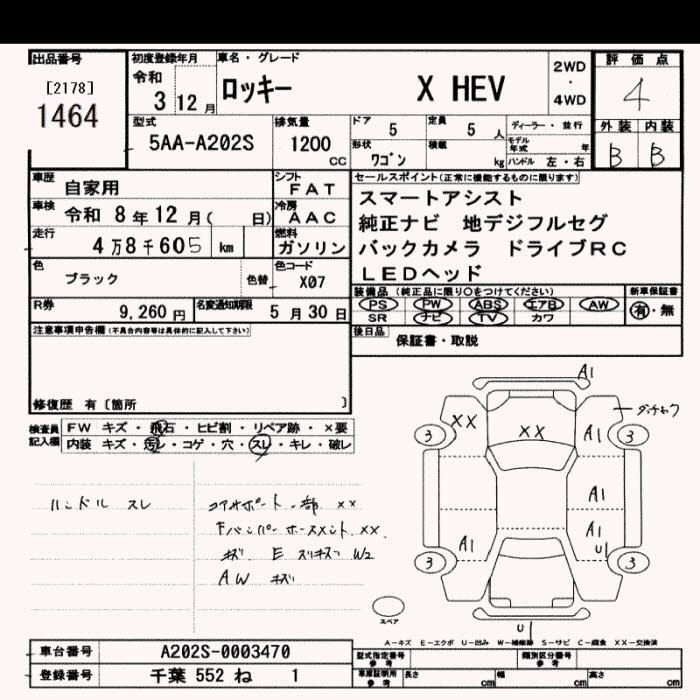 出品番号
[2178]
1464
初度登録年月
令和
3 12 月
車名・グレード
ロッキー X HEV
2WD
・
4WD
評価点
4
外装 内装
B B
型式
5AA-A202S
排気量
1200
CC
ドア
5
定員
5 人
ディーラー・並行
形状
ワゴン
積載
kg
モデル年式 年
ハンドル 左・右
車歴
自家用
シフト
FAT
車検
令和 8年12月( 日)
冷房
AAC
走行
4万8千605 km
燃料
ガソリン
色
ブラック
色替
色コード
X07
R券
9,260 円
名変通知期限
5月30日
セールスポイント(正常に機能するものに限ります)
スマートアシスト
純正ナビ 地デジフルセグ
バックカメラ ドライブRC
LEDヘッド
装備品(純正品に限り〇をつけてください)
PS PW ABS エアB AW
SR ナビ TV カワ
新車保証書
有・無
後日品
保証書・取説
注意事項申告欄(不具合内容等は具体的に記入して下さい)
修復歴 有〔箇所 〕
検査員記入欄
FW キズ・飛石・ヒビ割・リペア跡・×要
内装 キズ・汚レ・コゲ・穴・スレ・キレ・破レ
ハンドル スレ
コアサポート一部 XX
Fバンパーホースメント XX
キズ E スリキズ W2
AW キズ
A1
XX
XX
A1
3
3
A1
A1
A1
U1
3
3
U1
スペア
A-キズ E-エクボ U-凹み W-補修跡 S-サビ C-腐食 XX-交換済
車台番号
A202S-0003470
登録番号
千葉 552 ね 1
型式指定番号
参考
類別区分番号
参考
車庫証明用
参考
長さ cm
幅 cm
高さ cm